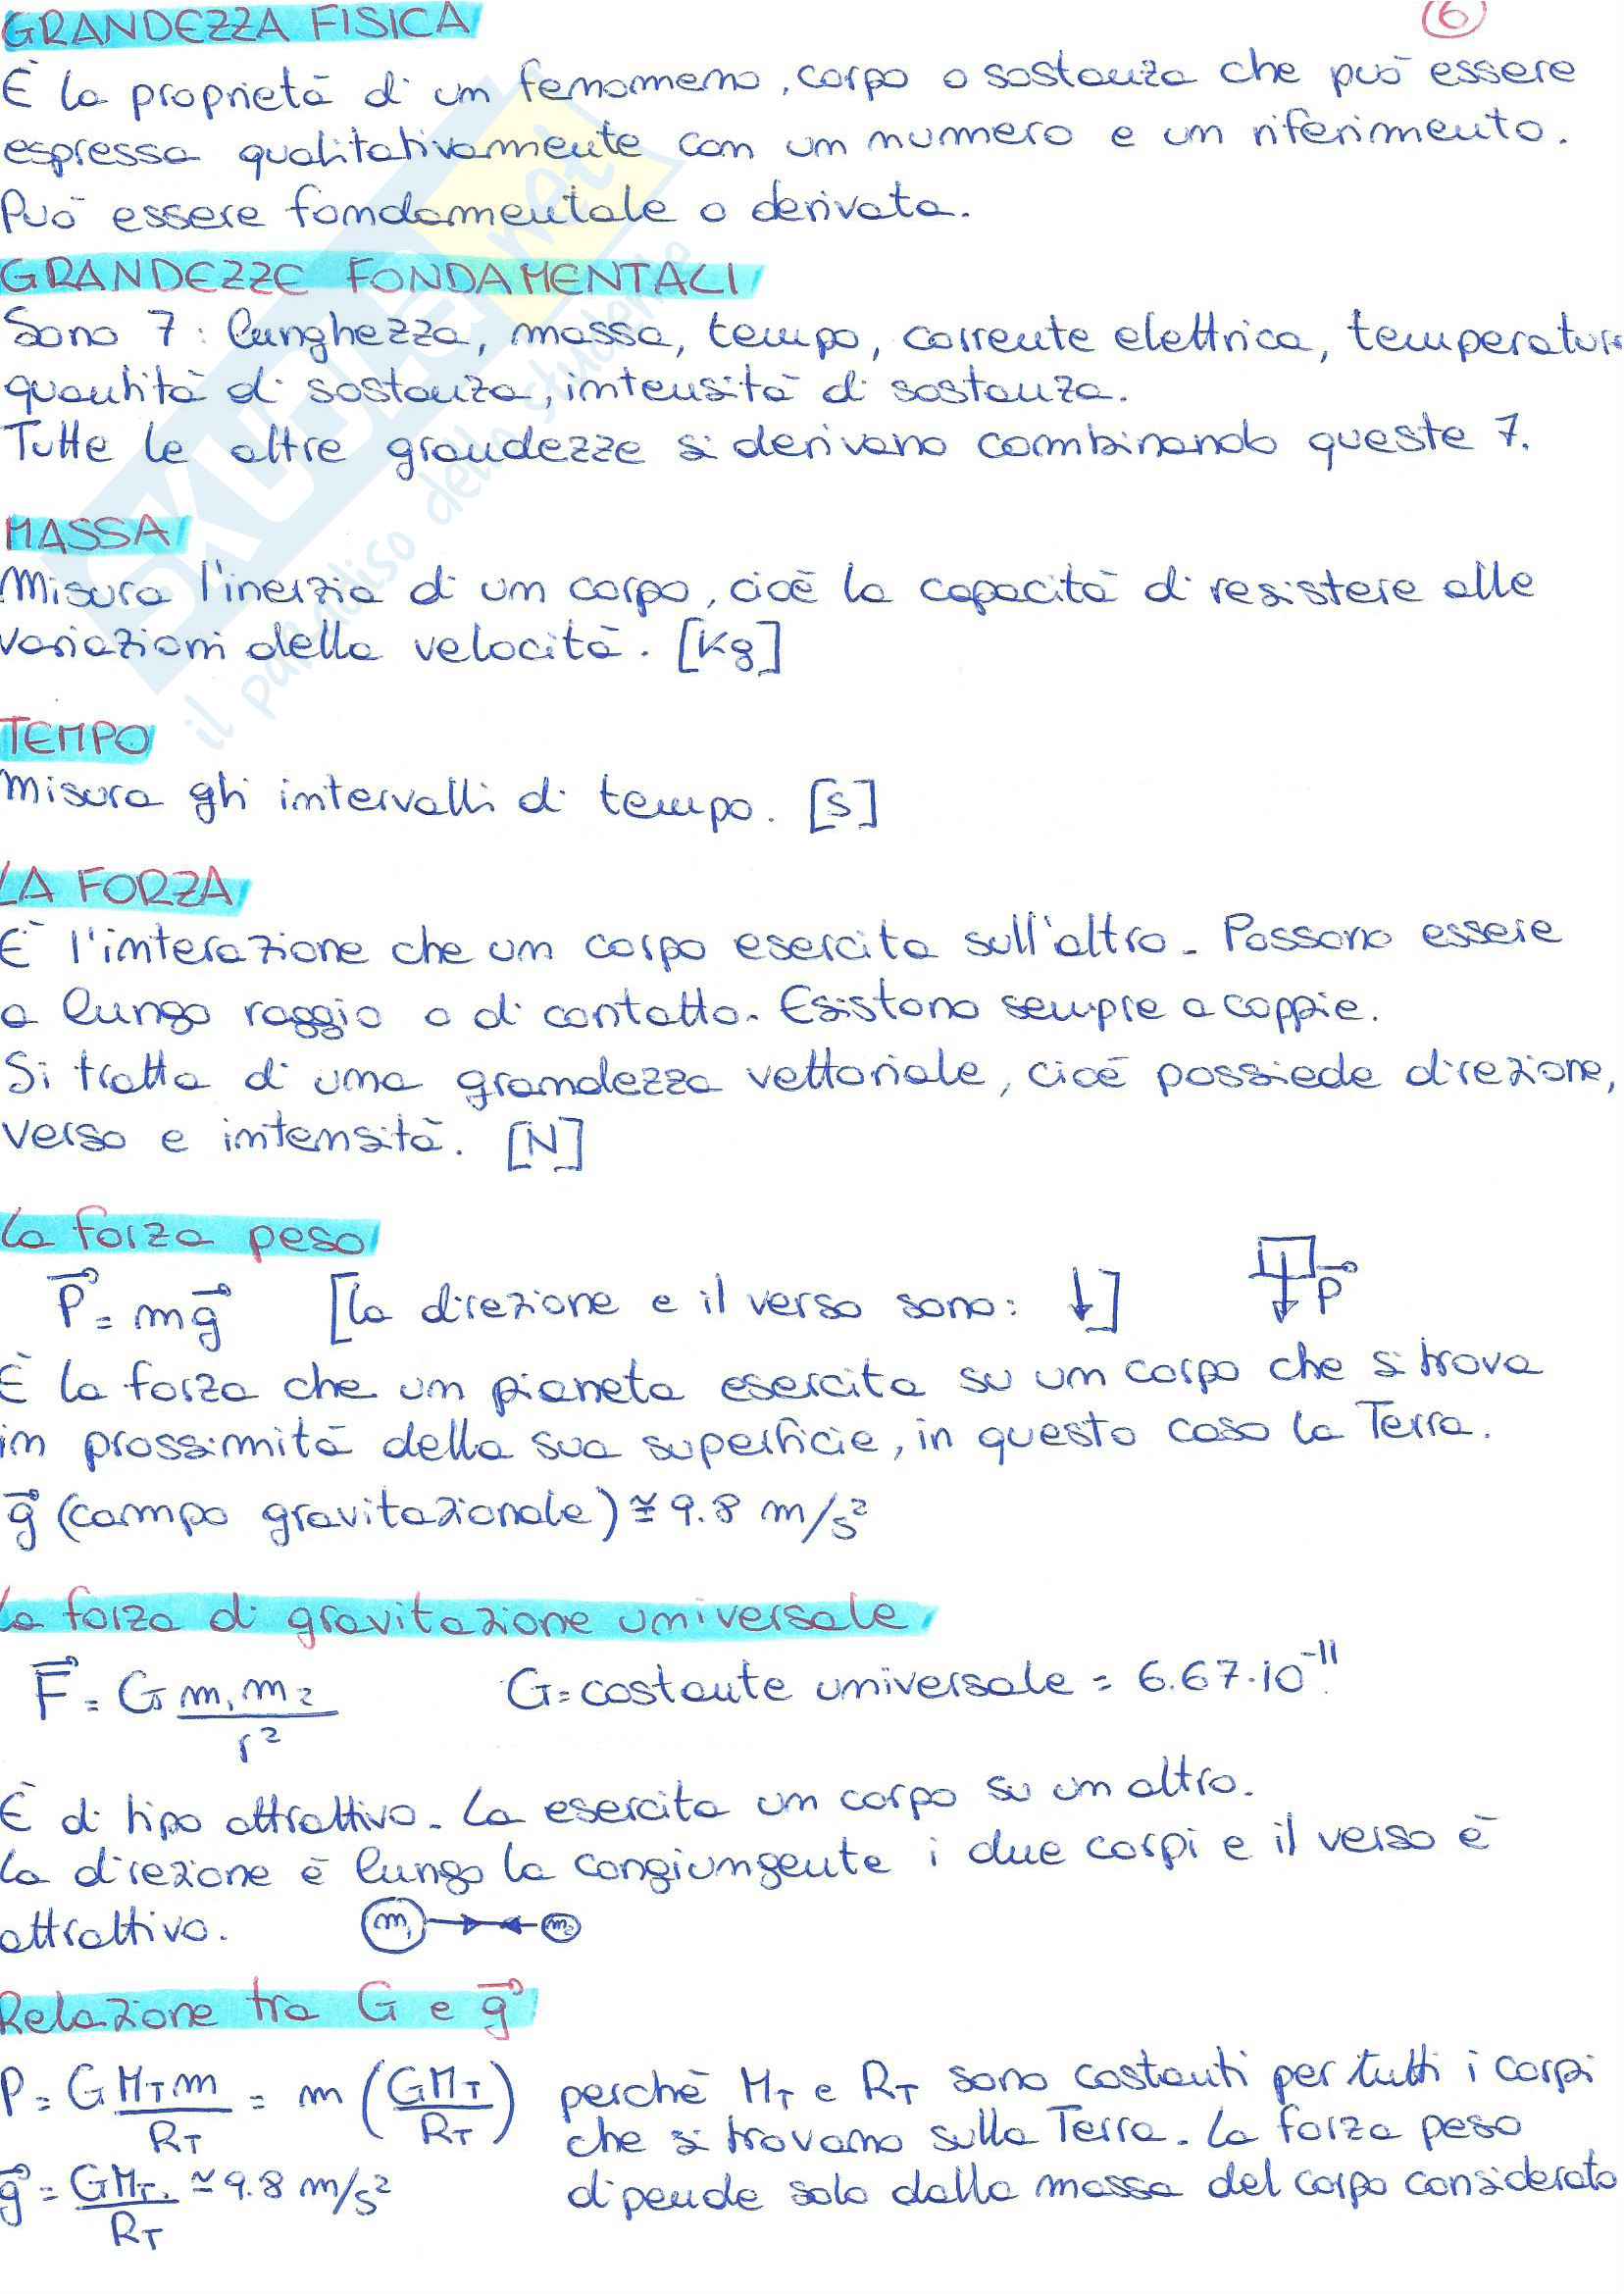 GRANDEZZA FISICA
6
È la proprietà di un fenommeno, corpo o sostanza che può essere
espressa qualitativamente con un nummero e un riferimento.
Può essere fondamentale o derivata.
GRANDEZZE FONDAMENTALI
Sono 7: lunghezza, massa, tempo, corrente elettrica, temperatura
quantità di sostanza, intensità di sostanza.
Tutte le altre grandezze si derivano combinando queste 7.
MASSA
Misura l'inerzia di un corpo, cioè la capacità di resistere alle
variazioni della velocità. [Kg]
TEMPO
Misura gli intervalli di tempo. [S]
LA FORZA
È l'interazione che un corpo esercita sull'altro. Possono essere
a lungo raggio o di contatto. Esistono sempre a coppie.
Si tratta di una grandezza vettoriale, cioè possiede direzione,
verso e intensità. [N]
La forza peso
P⃗ = mg⃗ [la direzione e il verso sono: ↓] P⃗
È la forza che un pianeta esercita su un corpo che si trova
in prossimità della sua superficie, in questo caso la Terra.
g⃗ (campo gravitazionale) ≅ 9.8 m/s²
La forza di gravitazione universale
F⃗ = G m₁m₂/r² G = costante universale = 6.67·10⁻¹¹.
È di tipo attrattivo. La esercita un corpo su un altro.
La direzione è lungo la congiungente i due corpi e il verso è
attrattivo. m₁ m₂
Relazione tra G e g⃗
P = G M_T m/R_T = m (GM_T/R_T) perchè M_T e R_T sono costanti per tutti i corpi
che si trovano sulla Terra. La forza peso
g⃗ = GM_T/R_T ≃ 9.8 m/s² dipende solo dalla massa del corpo considerato
SKUOLA.net
il paradiso dello studente